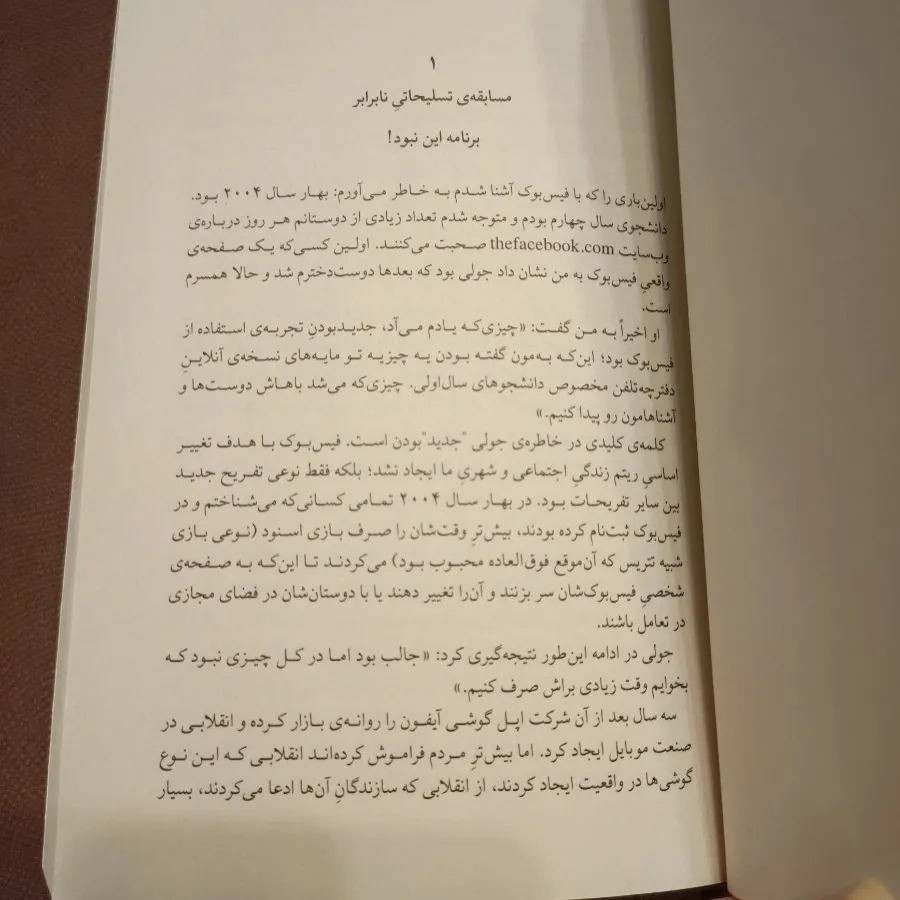 ۱
مسابقه‌ی تسلیحاتیِ نابرابر
برنامه این نبود!
اولین‌باری را که با فیس‌بوک آشنا شدم به خاطر می‌آورم: بهار سال ۲۰۰۴ بود.
دانشجوی سال چهارم بودم و متوجه شدم تعداد زیادی از دوستانم هر روز درباره‌ی
وب‌سایت thefacebook.com صحبت می‌کنند. اولین کسی‌که یک صفحه‌ی
واقعیِ فیس‌بوک به من نشان داد جولی بود که بعدها دوست‌دخترم شد و حالا همسرم
است.
او اخیراً به من گفت: «چیزی‌که یادم می‌آد، جدیدبودنِ تجربه‌ی استفاده از
فیس‌بوک بود؛ این‌که به‌مون گفته بودن یه چیزیه تو مایه‌های نسخه‌ی آنلاینِ
دفترچه‌تلفن مخصوص دانشجوهای سال‌اولی. چیزی‌که می‌شد باهاش دوست‌ها و
آشناهامون رو پیدا کنیم.»
کلمه‌ی کلیدی در خاطره‌ی جولی "جدید"بودن است. فیس‌بوک با هدف تغییر
اساسیِ ریتم زندگیِ اجتماعی و شهریِ ما ایجاد نشد؛ بلکه فقط نوعی تفریح جدید
بین سایر تفریحات بود. در بهار سال ۲۰۰۴ تمامی کسانی‌که می‌شناختم و در
فیس‌بوک ثبت‌نام کرده بودند، بیش‌ترِ وقت‌شان را صرف بازی اسنود (نوعی بازی
شبیه تتریس که آن‌موقع فوق‌العاده محبوب بود) می‌کردند تا این‌که به صفحه‌ی
شخصیِ فیس‌بوک‌شان سر بزنند و آن‌را تغییر دهند یا با دوستان‌شان در فضای مجازی
در تعامل باشند.
جولی در ادامه این‌طور نتیجه‌گیری کرد: «جالب بود اما در کل چیزی نبود که
بخوایم وقت زیادی براش صرف کنیم.»
سه سال بعد از آن شرکت اپل گوشی آیفون را روانه‌ی بازار کرده و انقلابی در
صنعت موبایل ایجاد کرد. اما بیش‌ترِ مردم فراموش کرده‌اند انقلابی که این نوع
گوشی‌ها در واقعیت ایجاد کردند، از انقلابی که سازندگانِ آن‌ها ادعا می‌کردند، بسیار